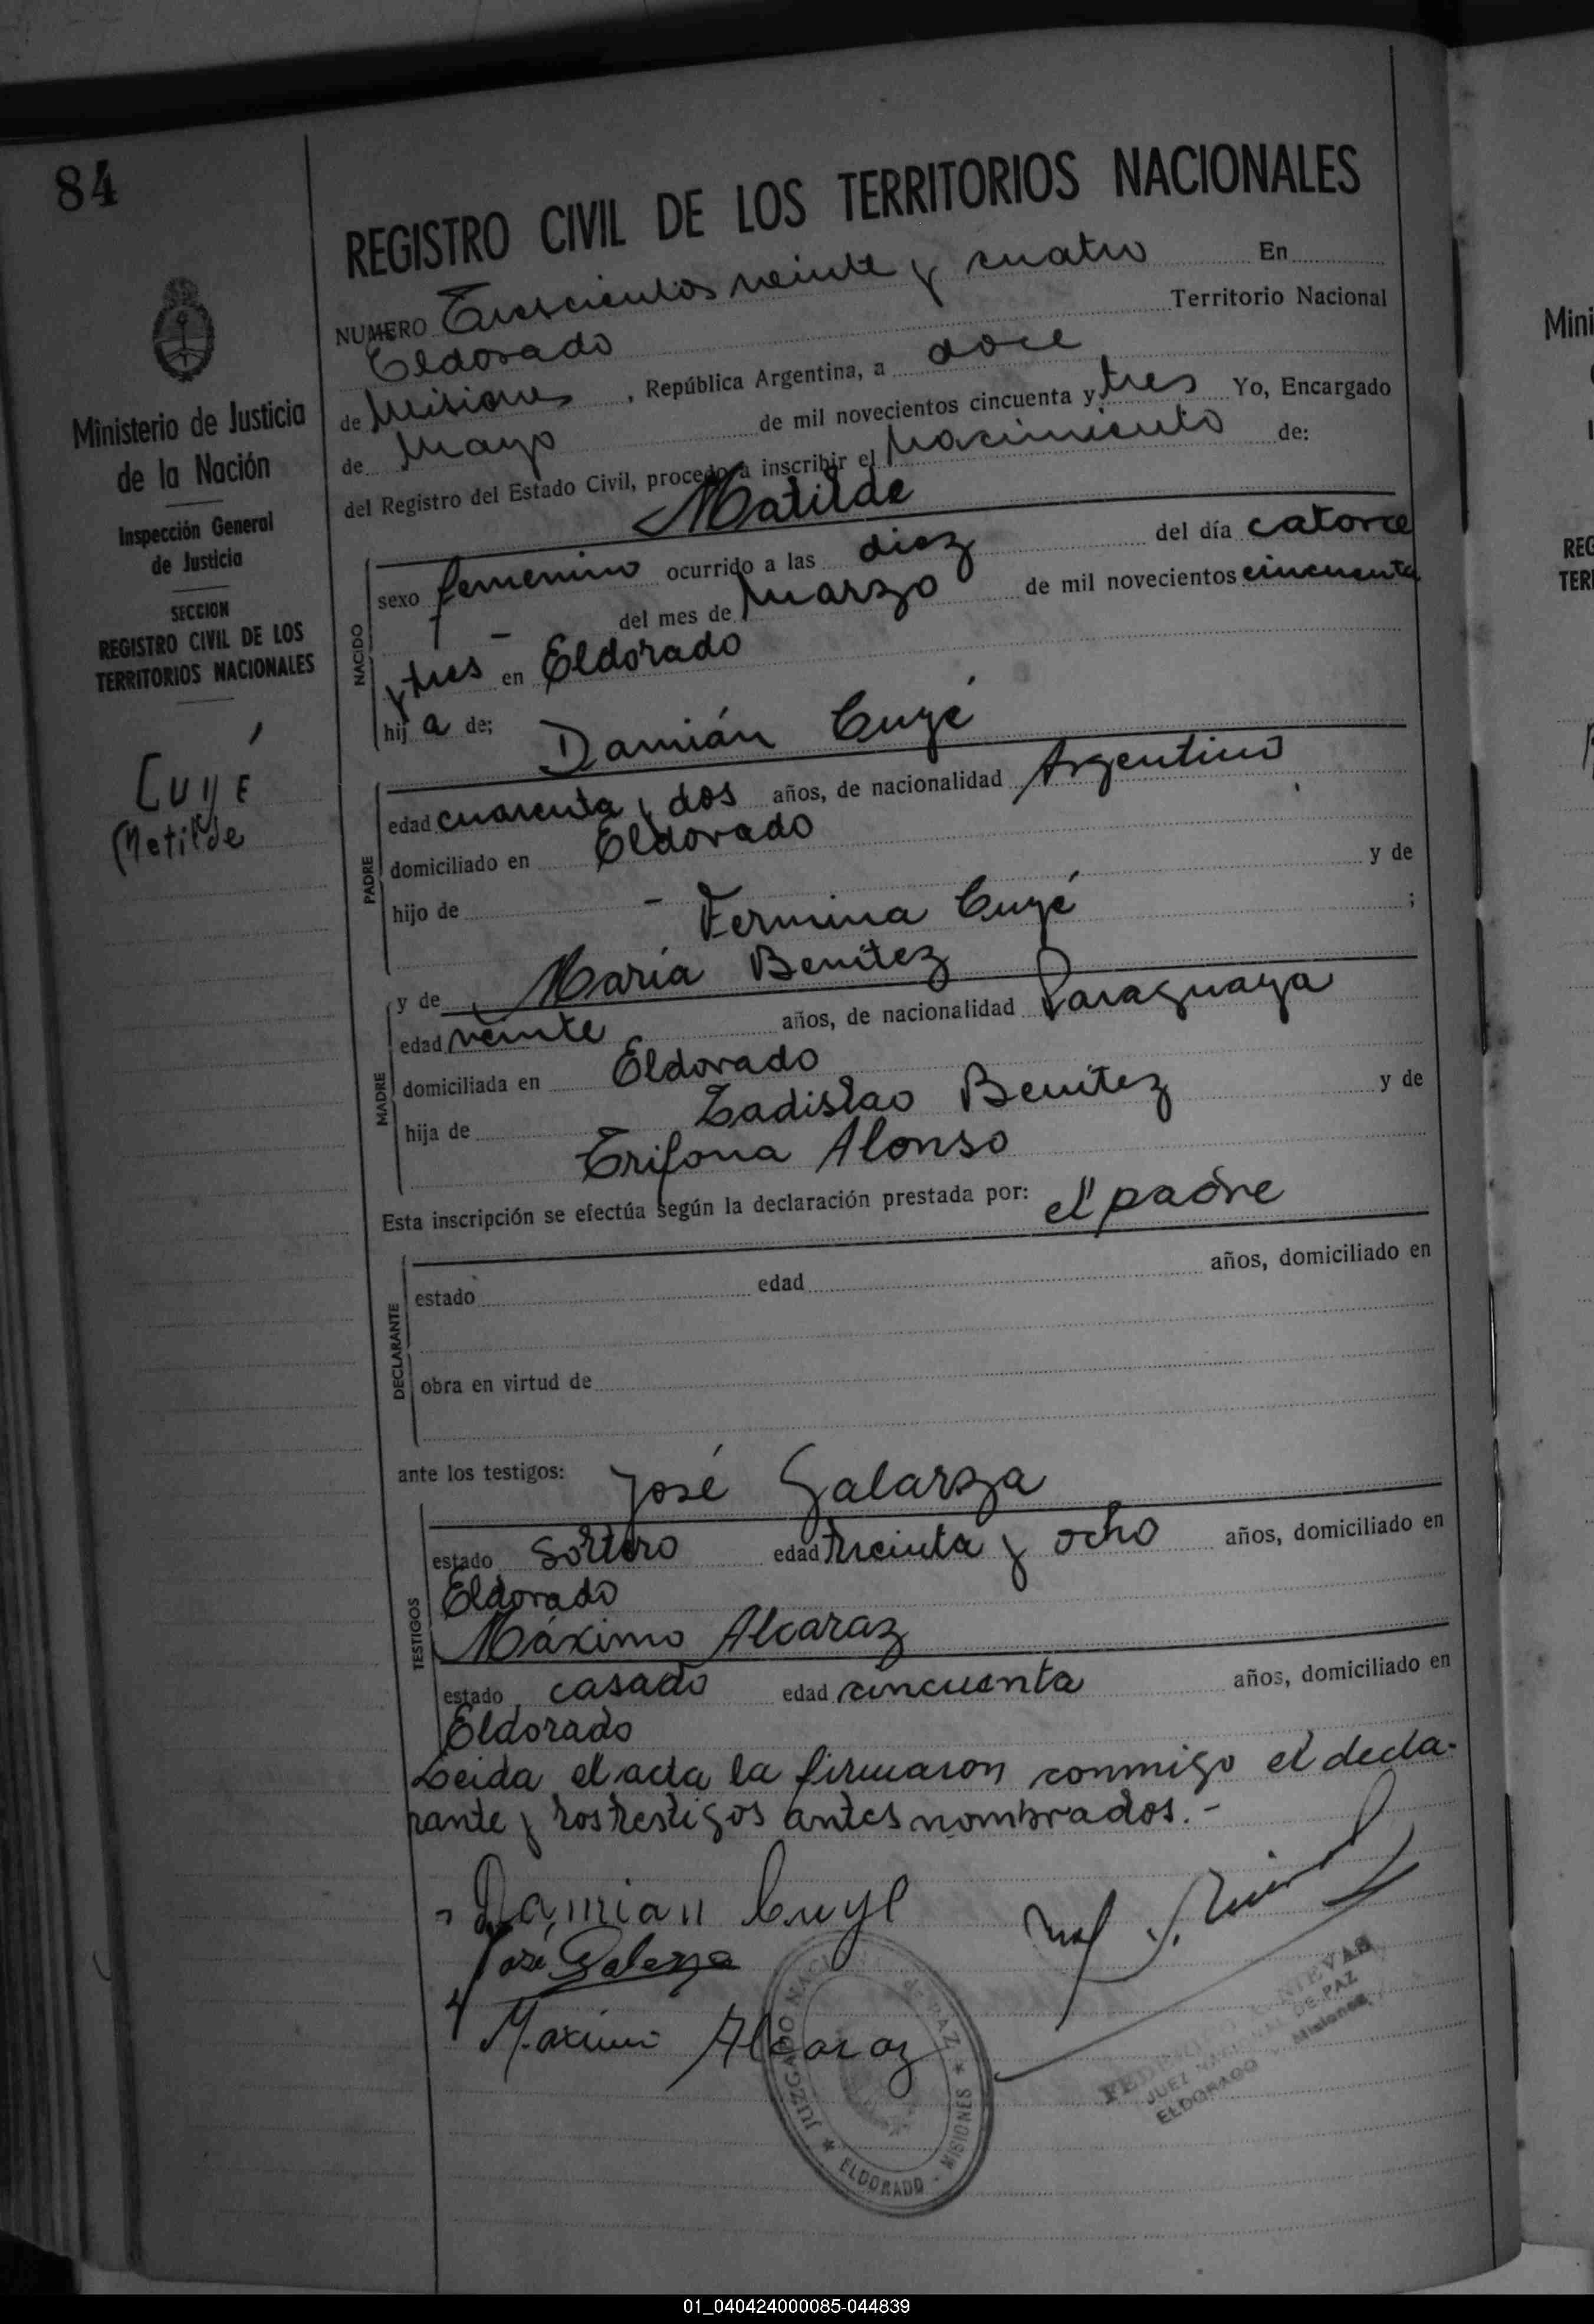 84
REGISTRO CIVIL DE LOS TERRITORIOS NACIONALES
NUMERO Trescientos veinte y cuatro En
Eldorado Territorio Nacional
de Misiones, República Argentina, a doce
de Mayo de mil novecientos cincuenta y tres Yo, Encargado
del Registro del Estado Civil, procedo a inscribir el Nacimiento de:
Matilde
Ministerio de Justicia
de la Nación
Inspección General
de Justicia
SECCION
REGISTRO CIVIL DE LOS
TERRITORIOS NACIONALES
CUYE
Matilde
NACIDO
sexo femenino ocurrido a las diez del día catorce
- del mes de Marzo de mil novecientos cincuenta
y tres en Eldorado
hij a de; Damián Cuyé
PADRE
edad cuarenta y dos años, de nacionalidad Argentino
domiciliado en Eldorado
hijo de - y de
Fermina Cuyé ;
y de María Benítez
MADRE
edad veinte años, de nacionalidad Paraguaya
domiciliada en Eldorado
hija de Ladislao Benítez y de
Trifona Alonso
Esta inscripción se efectúa según la declaración prestada por: el padre
DECLARANTE
estado edad años, domiciliado en
obra en virtud de
ante los testigos: José Galarza
TESTIGOS
estado soltero edad treinta y ocho años, domiciliado en
Eldorado
Máximo Alcaraz
estado casado edad cincuenta años, domiciliado en
Eldorado
Leida el acta la firmaron conmigo el decla-
rante y los testigos antes nombrados.-
Damian Cuye
José Galarza
Maximo Alcaraz
JUZGADO NACIONAL DE PAZ
ELDORADO - MISIONES
NIEVAS
JUEZ NACIONAL DE PAZ
ELDORADO - Misiones
Mini
REG
TER
01_040424000085-044839